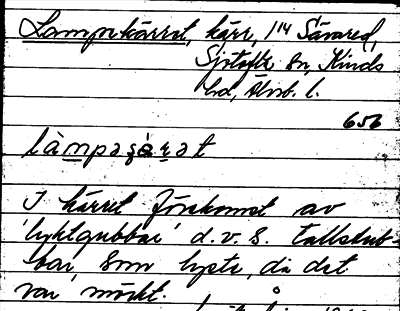 Lampekärret, kärr, 1/4 Sävared,
Sjötofta sn, Kinds
hd, Älvsb. l.
656
I kärret förekomst av
'lyktgubbar' d.v.s. tallstub-
bar, som lyste, då det
var mörkt.